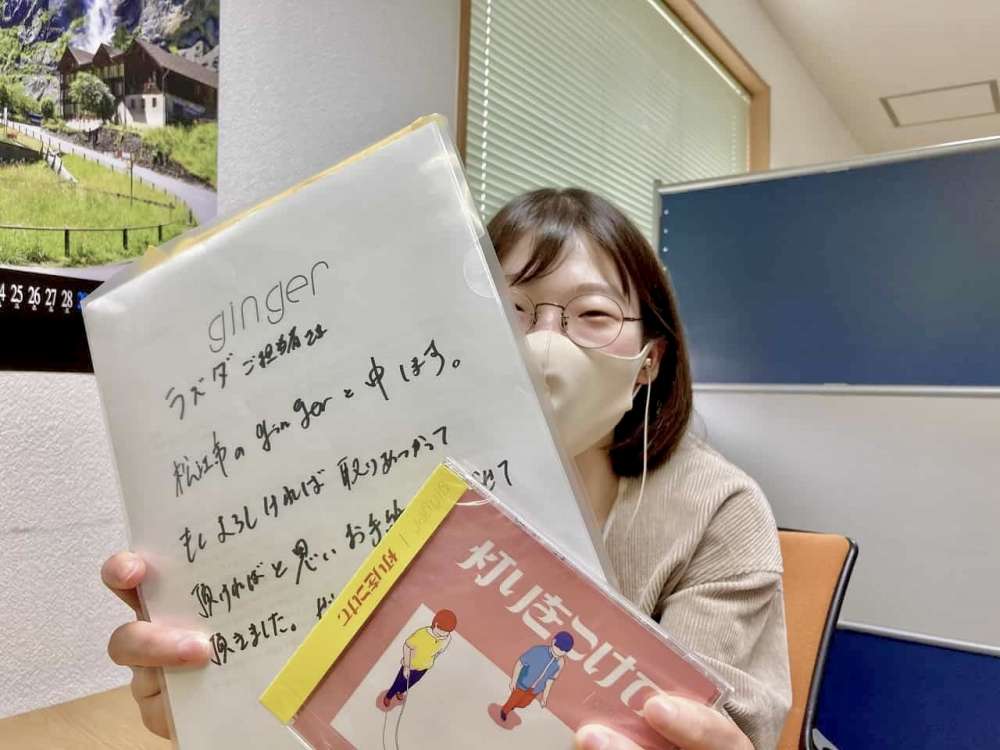 ginger
ラズダ ご担当者さま
松江市の gingerと申します。
もしよろしければ 取りあつかって
頂ければと思い お手紙 せて
頂きました。
灯りをつけて
灯りをつけて
4 25 26 27 28